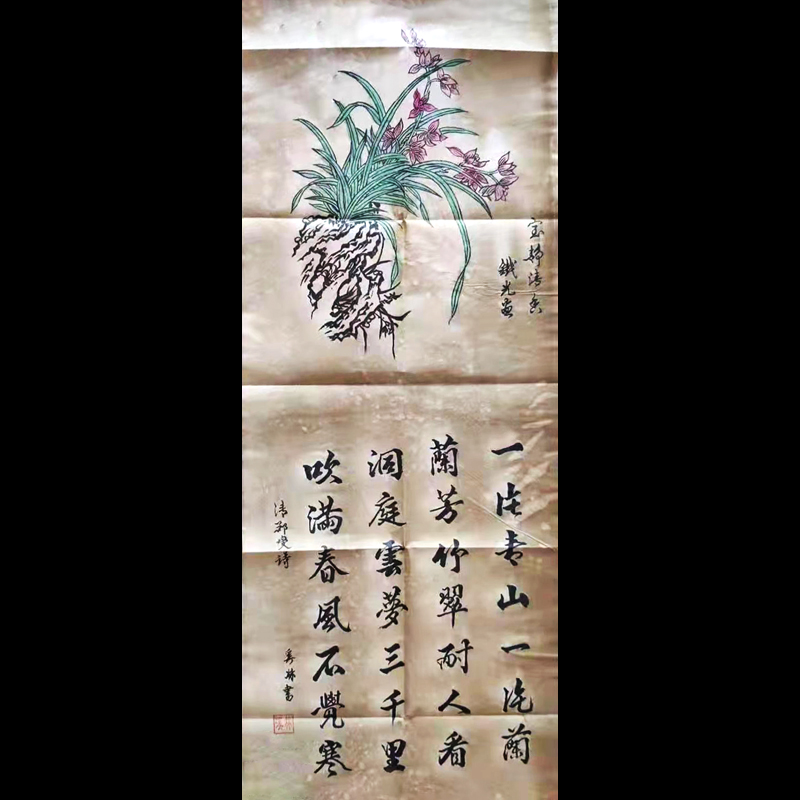 室静清香
鐵光畫
一片青山一片蘭
蘭芳竹翠耐人看
洞庭雲夢三千里
吹满春風不覺寒
清鄭燮詩
書